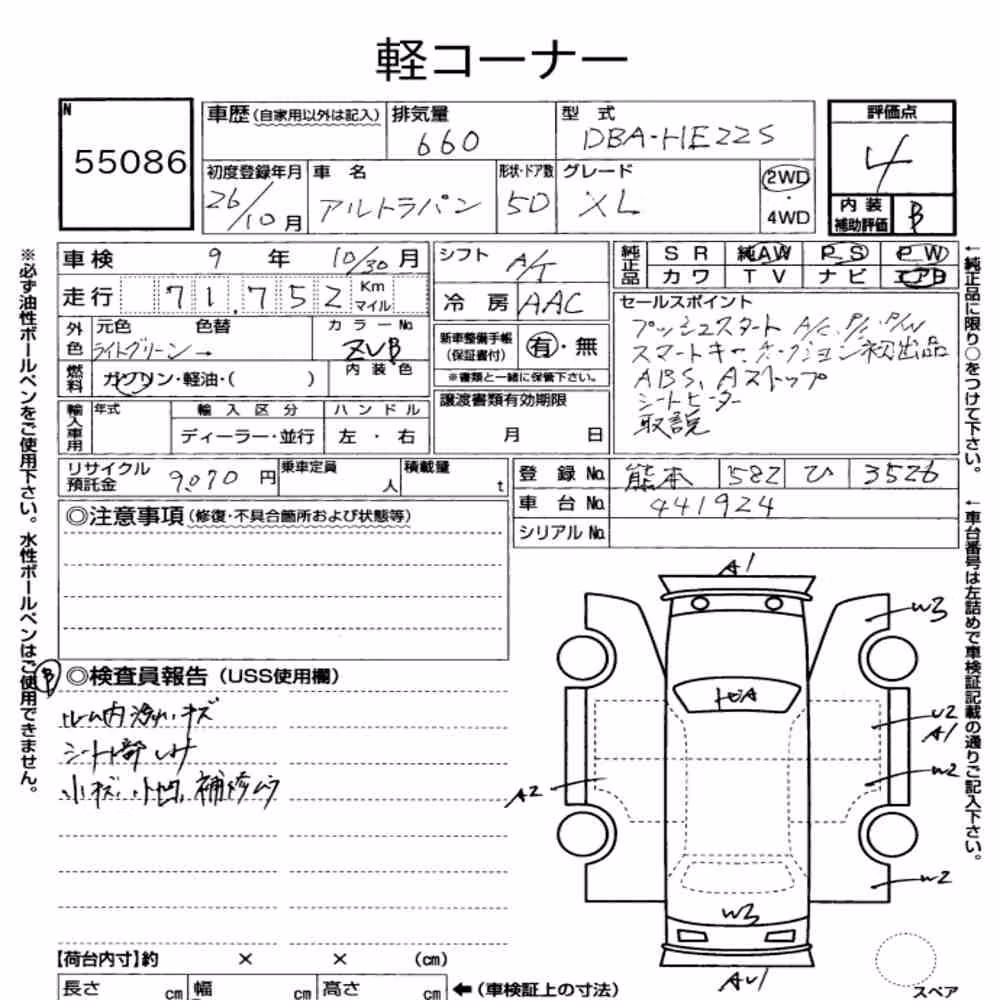 軽コーナー
N
55086
車歴(自家用以外は記入)
排気量
660
型 式
DBA-HE22S
評価点
4
初度登録年月
26/10月
車 名
アルトラパン
形状・ドア数
5D
グレード
XL
2WD
・
4WD
内 装
補助評価
B
※必ず油性ボールペンをご使用下さい。水性ボールペンはご使用できません。
車検 9 年 10/30月
走行 71,752 Km マイル
シフト A/T
冷 房 AAC
純正品
SR 純AW PS PW
カワ TV ナビ エアB
外色
元色 色替
ライトグリーン→
カラーNo.
ZVB
内 装 色
燃料
ガソリン・軽油・( )
新車整備手帳
(保証書付)
有・無
※書類と一緒に保管下さい。
セールスポイント
プッシュスタート A/C, P/S, P/W
スマートキー
初出品
ABS, Aストップ
シートヒーター
取説
輸入車用
年式
輸 入 区 分
ハ ン ド ル
ディーラー・並行
左 ・ 右
譲渡書類有効期限
月 日
←純正品に限り○をつけて下さい。
リサイクル
預託金
9,070円
乗車定員
人
積載量
t
登 録 No. 熊本 582 ひ 3526
車 台 No. 441924
シリアル No.
←車台番号は左詰めで車検証記載の通りご記入下さい。
◎注意事項(修復・不具合箇所および状態等)
B
◎検査員報告(USS使用欄)
ルーム内汚れ、キズ
小キズ、小凹、補修ムラ
A1
W3
U2
A1
W2
A2
W2
W3
AU1
スペア
【荷台内寸】約 × × (cm)
長さ cm
幅 cm
高さ cm
←(車検証上の寸法)